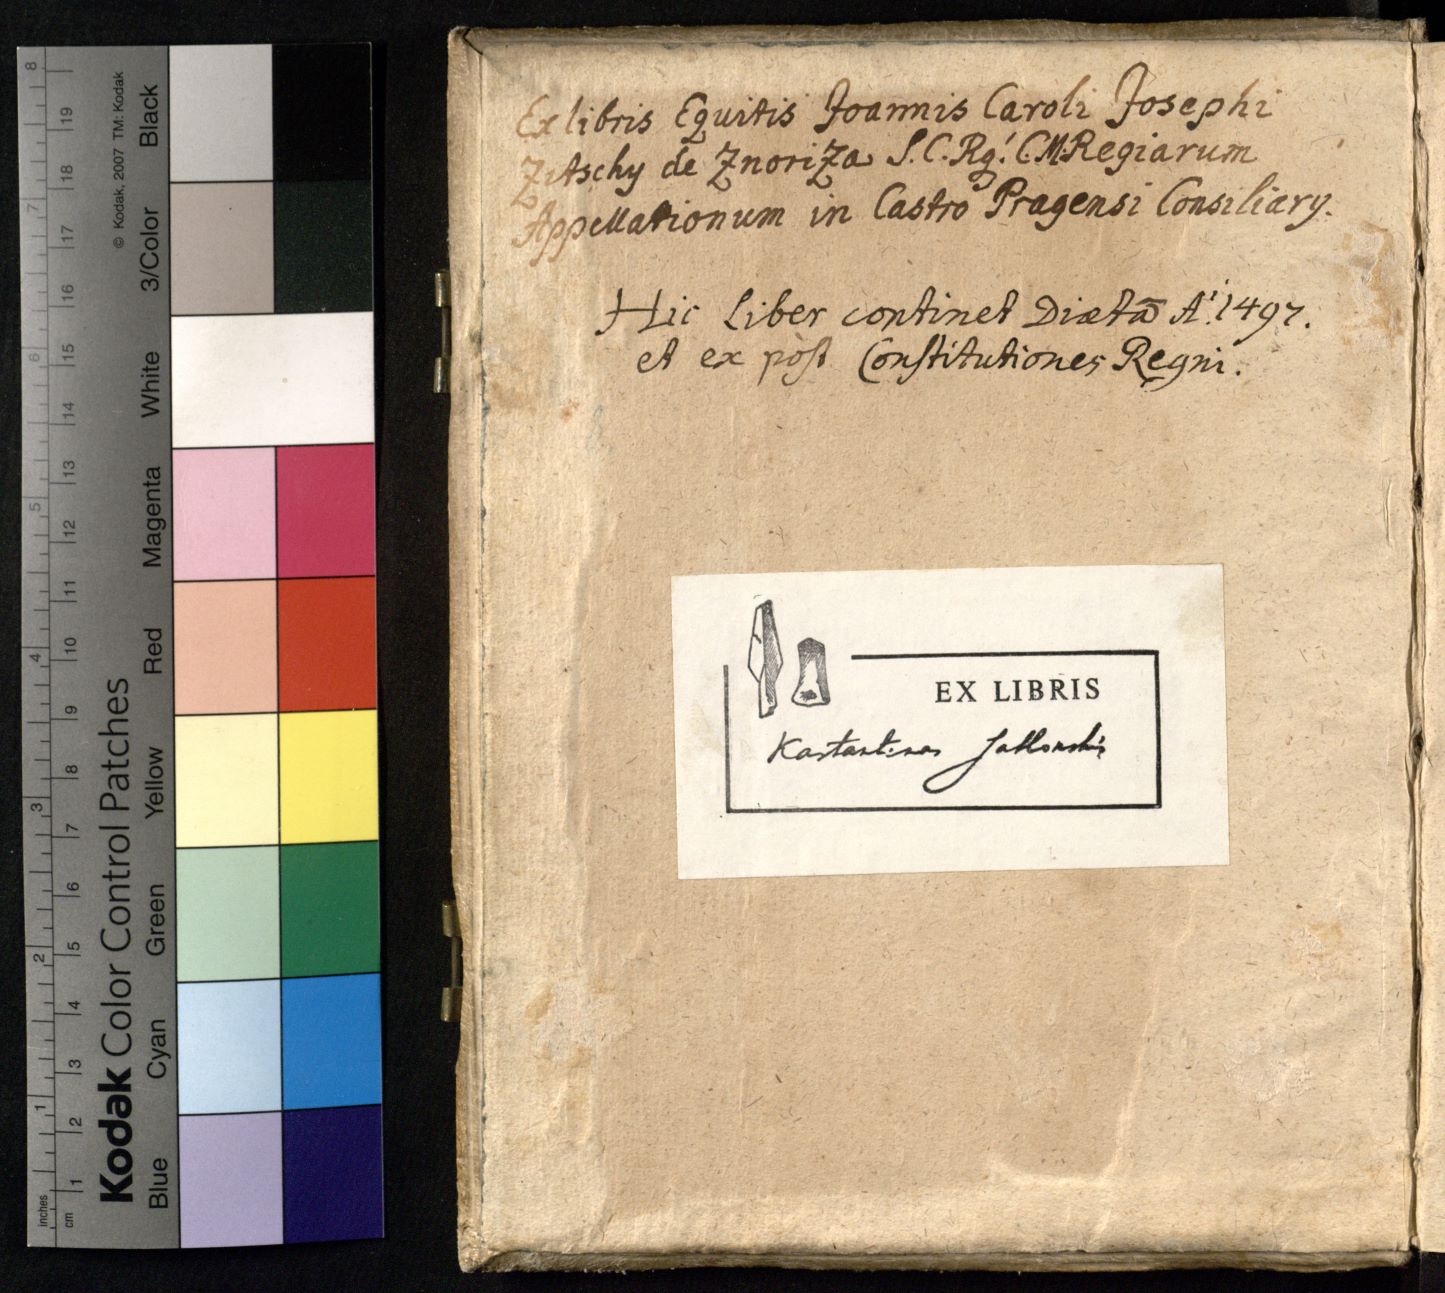 Ex libris Equitis Joannis Caroli Josephi
Zitschy de ZnoriZa S.C.Rg! C.M.Regiarum
Appellationum in Castro Pragensi Consiliary.
Hic Liber continet Diætā Aⁱ. 1497.
et ex pòst Constitutiones Regni.
EX LIBRIS
Kastantinas Jablonskis
Kodak Color Control Patches
© Kodak, 2007 TM: Kodak
Blue Cyan Green Yellow Red Magenta White 3/Color Black
inches 1 2 3 4 5 6 7 8
cm 1 2 3 4 5 6 7 8 9 10 11 12 13 14 15 16 17 18 19